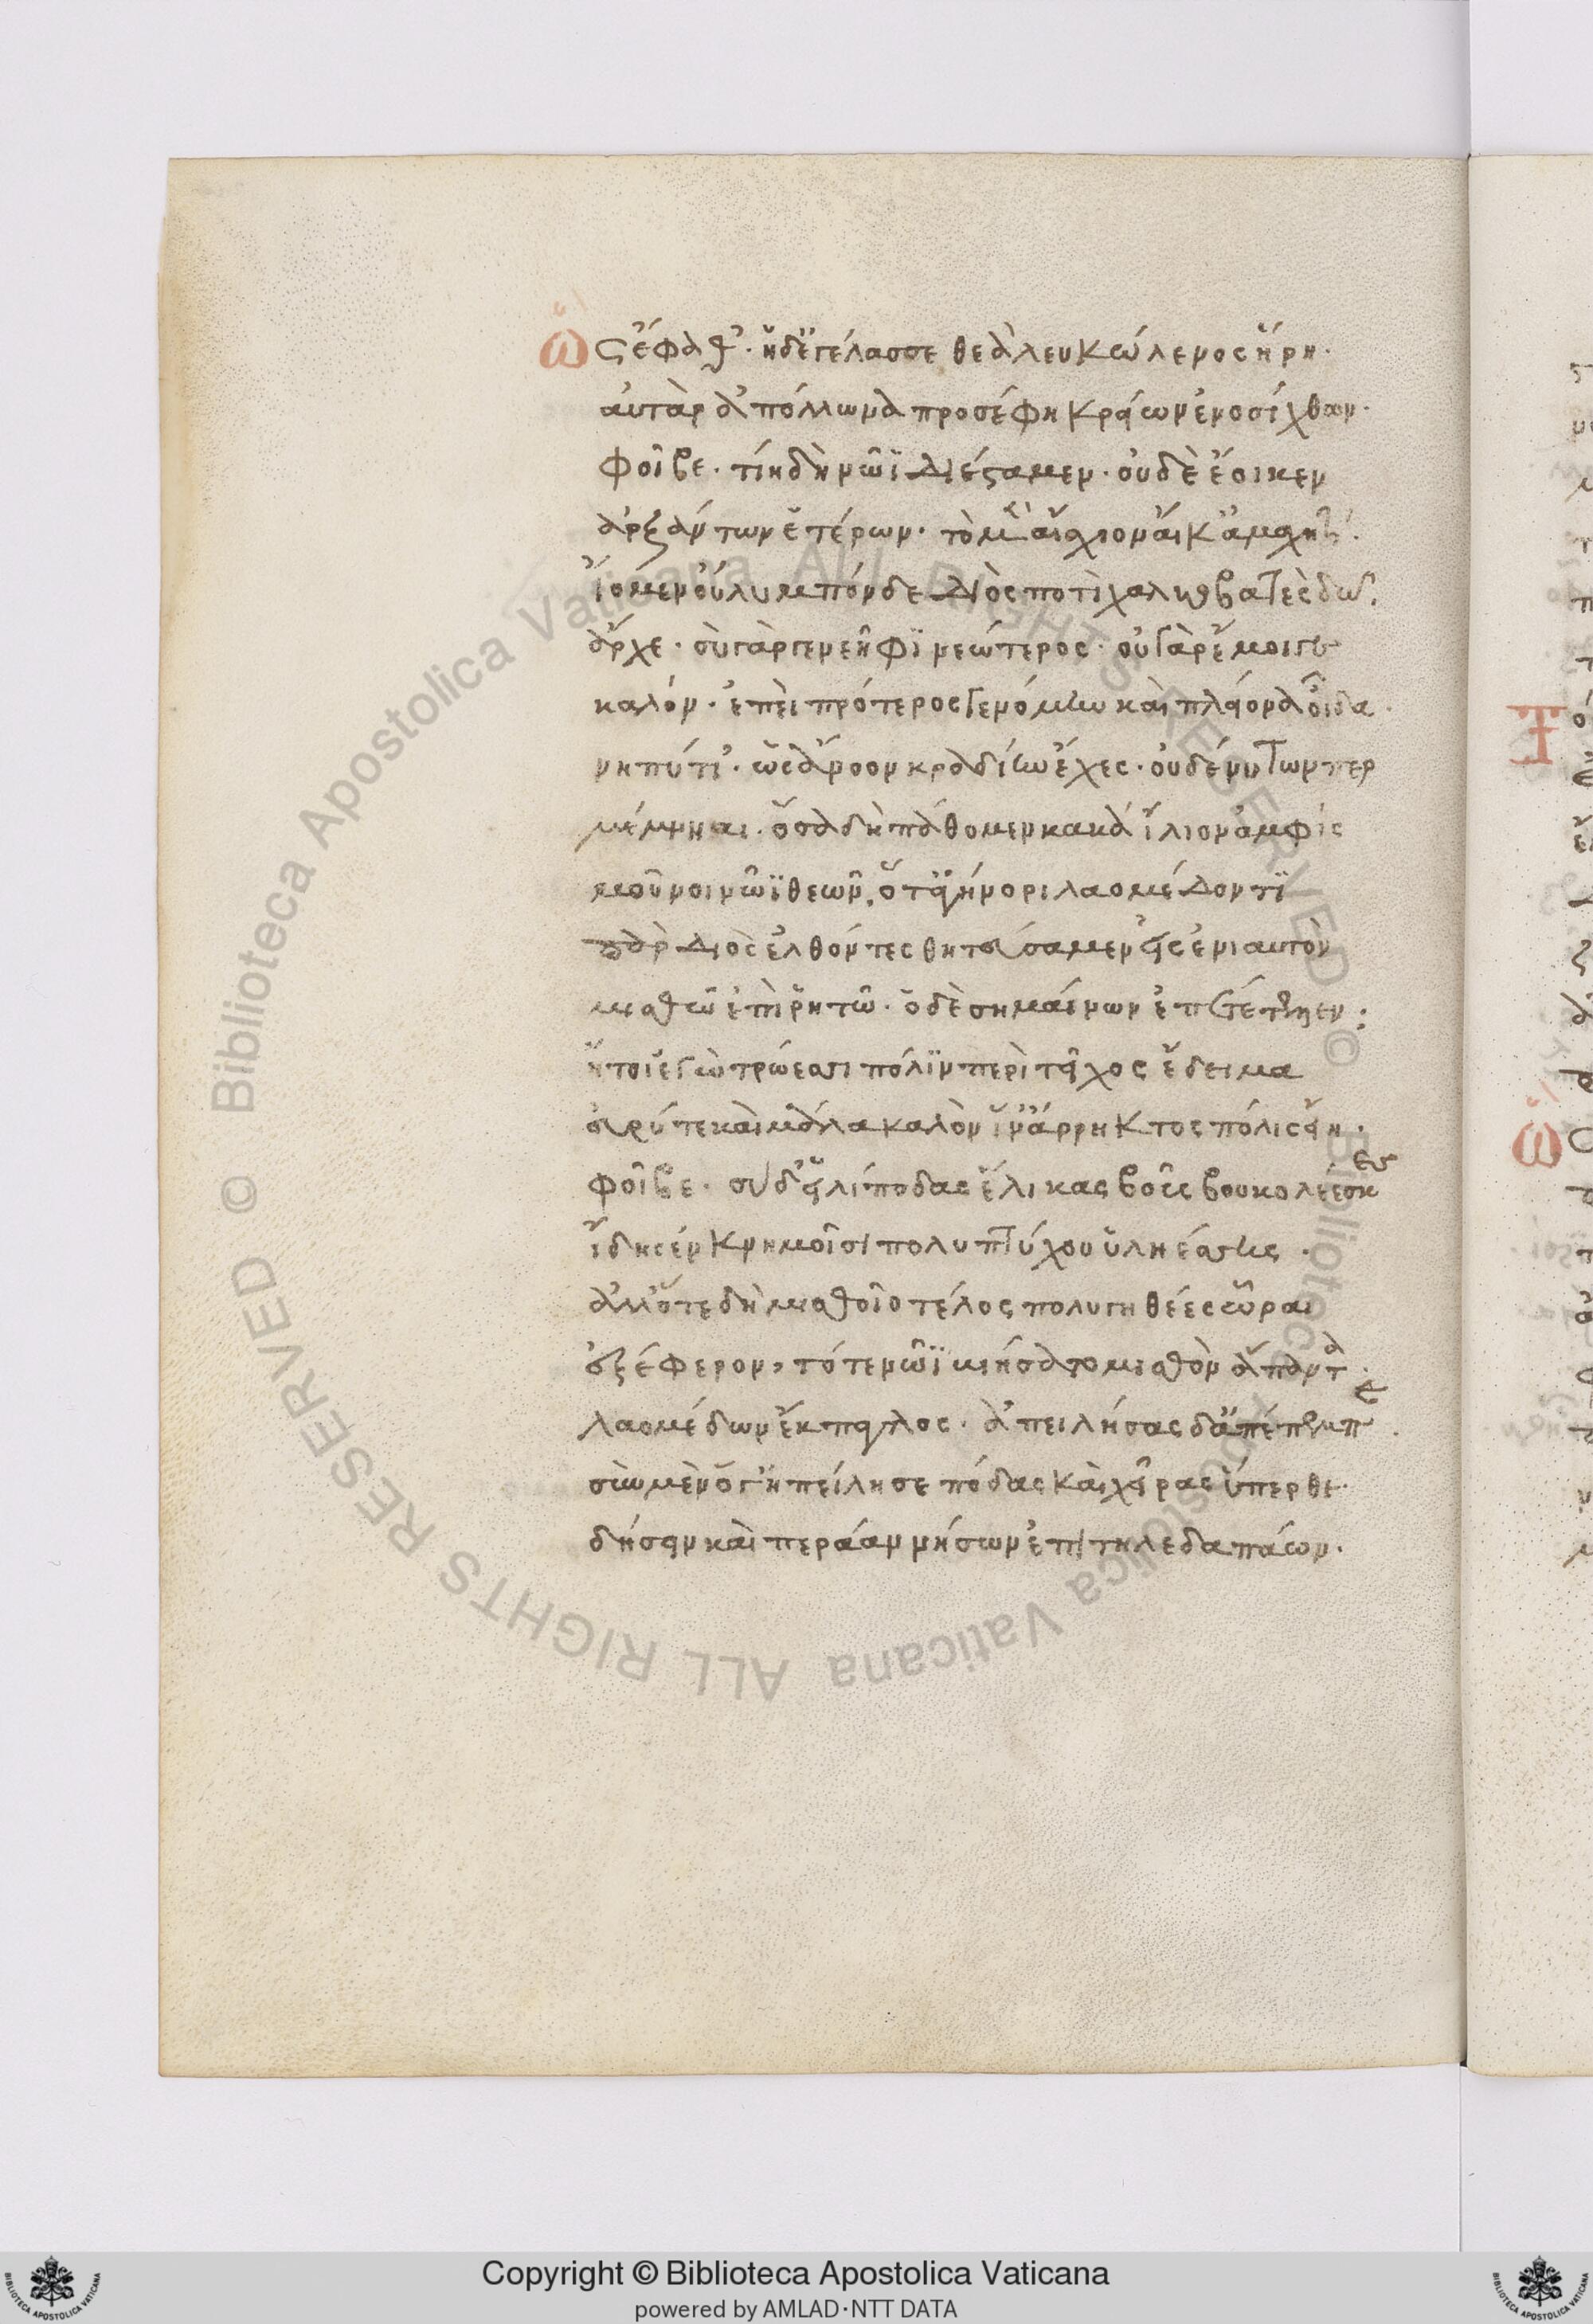 ὣς ἔφαθ'· ἡ δὲ γέλασσε θεὰ λευκώλενος ἥρη·
αὐτὰρ ἀπόλλωνα προσέφη κρείων ἐνοσίχθων·
φοῖβε· τίη δὴ νῶϊ διέσταμεν· οὐδὲ ἔοικεν
ἀρξάντων ἑτέρων· τὸ μὲν αἴσχιον αἴ κ' ἀμαχητί·
ἴομεν οὔλυμπόνδε Διὸς ποτὶ χαλκοβατὲς δῶ·
ἄρχε· σὺ γὰρ γενεῆφι νεώτερος· οὐ γὰρ ἔμοιγε
καλόν· ἐπεὶ πρότερος γενόμην καὶ πλείονα οἶδα·
νηπύτι'· ὡς ἄνοον κραδίην ἔχες· οὐδέ νυ τῶν περ
μέμνηαι· ὅσα δὴ πάθομεν κακὰ ἴλιον ἀμφὶς
μοῦνοι νῶϊ θεῶν, ὅτ' ἀγήνορι λαομέδοντι
πὰρ Διὸς ἐλθόντες θητεύσαμεν εἰς ἐνιαυτὸν
μισθῷ ἐπὶ ῥητῷ· ὁ δὲ σημαίνων ἐπέτελλεν:
ἤτοι ἐγὼ τρώεσσι πόλιν πέρι τεῖχος ἔδειμα
εὐρύ τε καὶ μάλα καλὸν ἵν' ἄρρηκτος πόλις εἴη·
φοῖβε· σὺ δ' εἰλίποδας ἕλικας βοῦς βουκολέεσκες
ἴδης ἐν κνημοῖσι πολυπτύχου ὑληέσσης·
ἀλλ' ὅτε δὴ μισθοῖο τέλος πολυγηθέες ὧραι
ἐξέφερον, τότε νῶϊ βιήσατο μισθὸν ἅπαντα
λαομέδων ἔκπαγλος· ἀπειλήσας δ' ἀπέπεμπε·
σὺν μὲν ὅγ' ἠπείλησε πόδας καὶ χεῖρας ὕπερθε·
δήσειν καὶ περάαν νήσων ἔπι τηλεδαπάων·
Copyright © Biblioteca Apostolica Vaticana
powered by AMLAD·NTT DATA